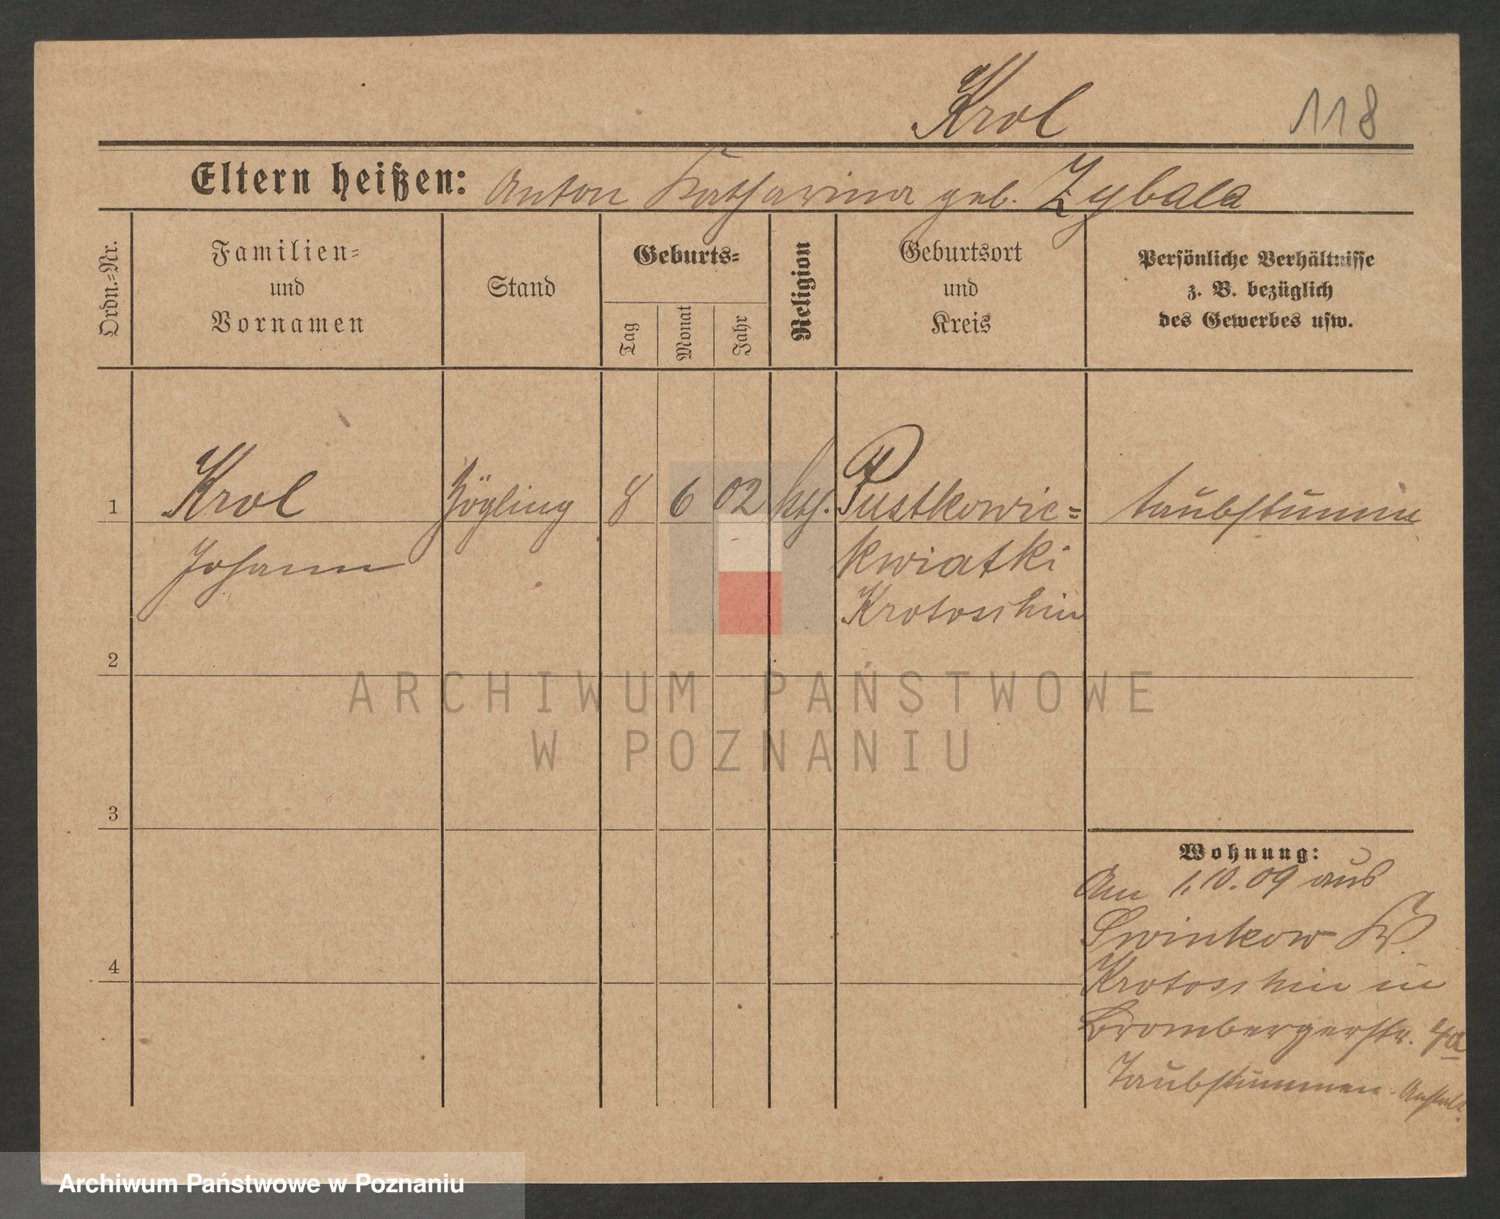 Krol
118
Eltern heißen: Anton Katharina geb. Zybala
Ordn.-Nr.
Familien-
und
Vornamen
Stand
Geburts-
Tag
Monat
Jahr
Religion
Geburtsort
und
Kreis
Persönliche Verhältnisse
z. B. bezüglich
des Gewerbes usw.
1 Krol Zögling 8 6 02 kth. Pustkowie- taubstumm
Johann kwiatki
Krotoschin
2
ARCHIWUM PAŃSTWOWE
W POZNANIU
3
Wohnung:
Am 1.10.09 aus
Swinkow Kr.
4 Krotoschin in
Brombergerstr. 4a
Taubstummen-Anstalt.
Archiwum Państwowe w Poznaniu